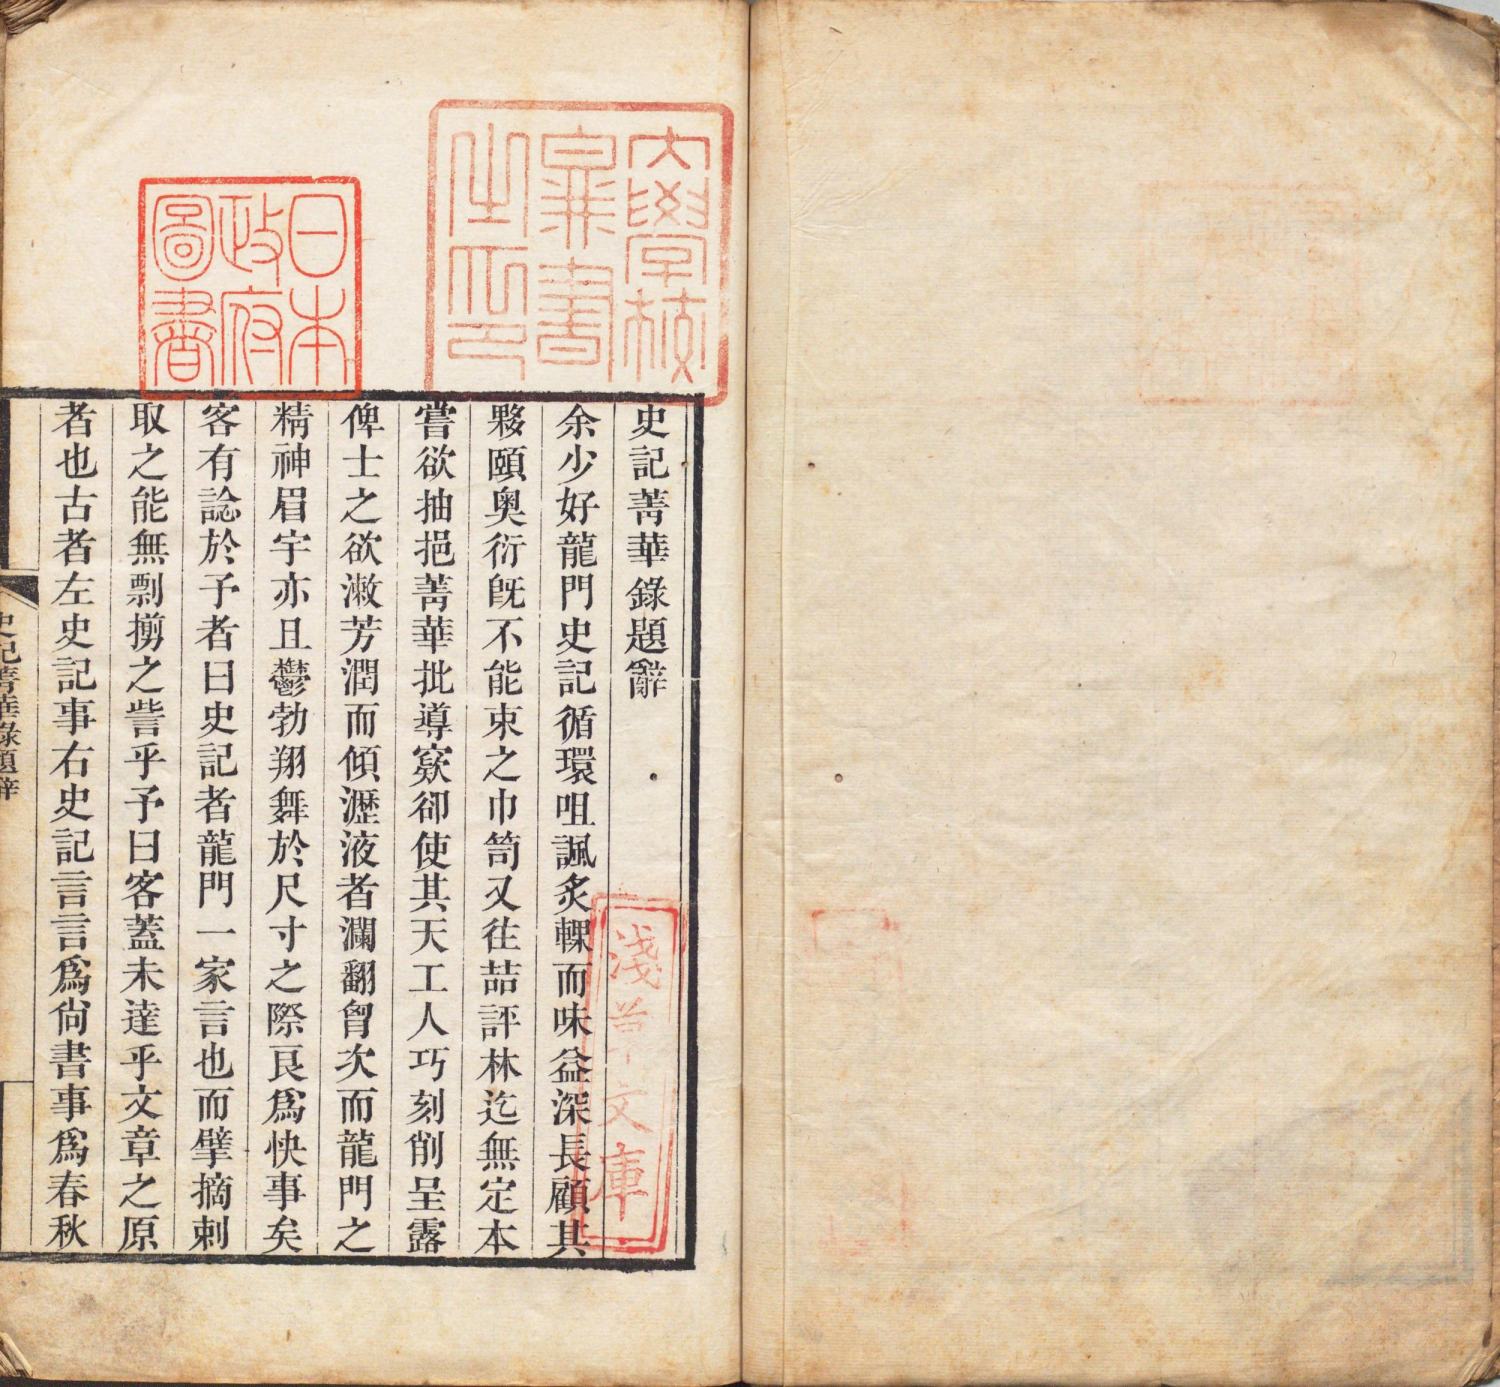 史記菁華錄題辭
余少好龍門史記循環咀諷炙輠而味益深長顧其
夥頤奥衍旣不能束之巾笥又往喆評林迄無定本
嘗欲抽挹菁華批導窾卻使其天工人巧刻削呈露
俾士之欲漱芳潤而傾瀝液者瀾翻胷次而龍門之
精神眉宇亦且鬱勃翔舞於尺寸之際良爲快事矣
客有諗於予者曰史記者龍門一家言也而擘摘剌
取之能無剽揃之訾乎予曰客蓋未達乎文章之原
者也古者左史記事右史記言言爲尙書事爲春秋
史記菁華錄題辭
大學校
圖書
之印
日本
政府
圖書
淺草文庫